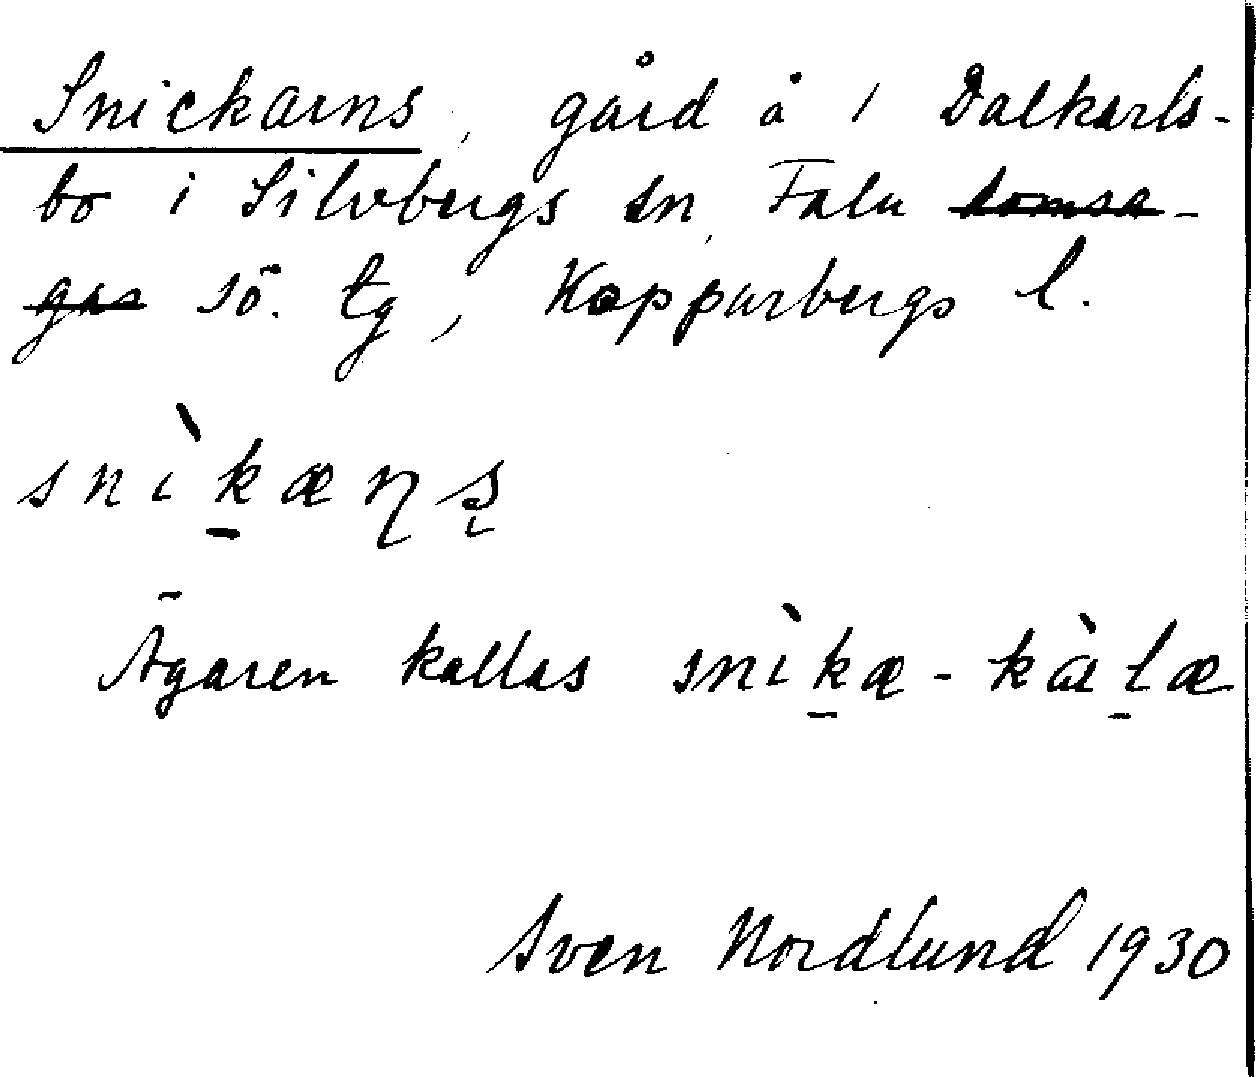 Snickarns, gård å 1 Dalkarls-
bo i Silvbergs sn, Falu domsa-
gas sö. tg, Kopparbergs l.
snìk̠æɳʂ
Ägaren kallas snìk̠æ-kàl̠æ
Sven Nordlund 1930